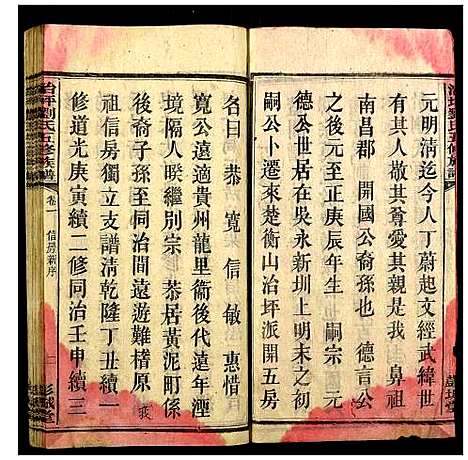 元明清迄今人丁蔚起文經武緯世
有其人故其尊愛其親是我 鼻祖
南昌郡 開國公裔孫也 德言公
之後元至正庚辰年生 嗣宗
德公世居吳永新圳上明末之初
嗣公卜遷來楚衡山治坪派開五房
名曰 恭 寬 信 敏 惠惜
寬公遠適貴州龍里衞後代遠年湮
境隔人𣅜繼別宗 恭居黃泥町係
後裔子孫至同治間遠遊難稽原 我
祖信房獨立支譜清乾隆丁丑續一
修道光庚寅續二修同治壬申續三
治坪劉氏五修族譜
卷一 信房新序
二
彭城堂